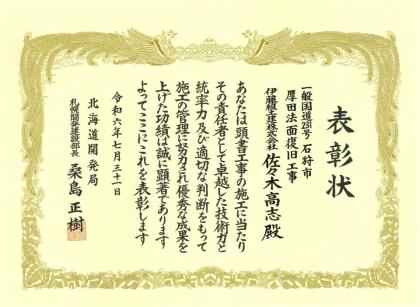 表彰状
一般国道231号 石狩市
厚田法面復旧工事
伊藤組土建株式会社 佐々木高志殿
あなたは頭書工事の施工に当たり
その責任者として卓越した技術力と
統率力及び適切な判断をもって
施工の管理に努力され優秀な成果を
上げた功績は誠に顕著であります
よってここにこれを表彰します
令和六年七月三十一日
北海道開発局
札幌開発建設部長 桑島正樹